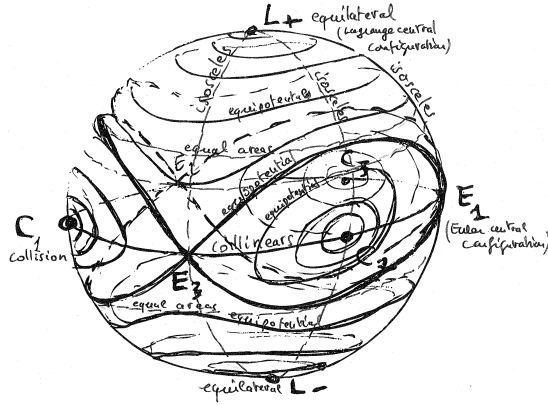 L+ equilateral
(Lagrange central
configuration)
isosceles
isosceles
isosceles
equipotentials
equal areas
E
equipotential
equipotential
C3
E1
(Euler central
configuration)
C1
collision
collinears
C2
E3
equal areas
equipotential
equilateral L-